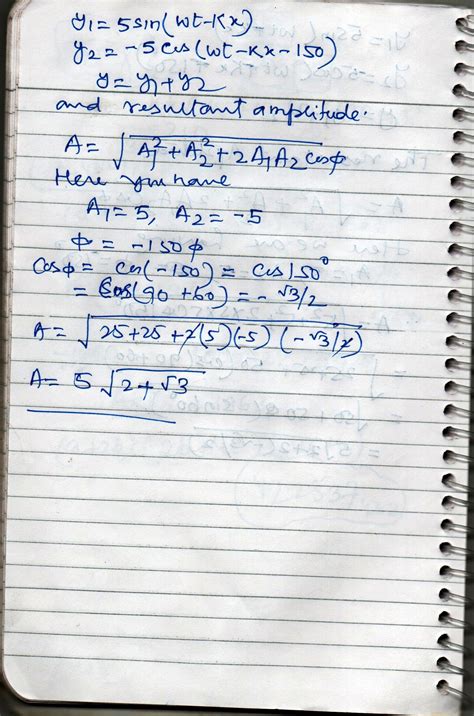 y1 = 5 sin(wt-Kx)
y2 = -5 cos(wt-Kx-150)
y = y1+y2
and resultant amplitude.
A = √(A1² + A2² + 2A1A2 cosϕ)
Here you have
A1 = 5, A2 = -5
ϕ = -150ϕ
Cosϕ = cos(-150) = cos150°
= Cos(90+60) = -√3/2
A = √(25+25+2(5)(-5)(-√3/2))
A = 5√(2+√3)